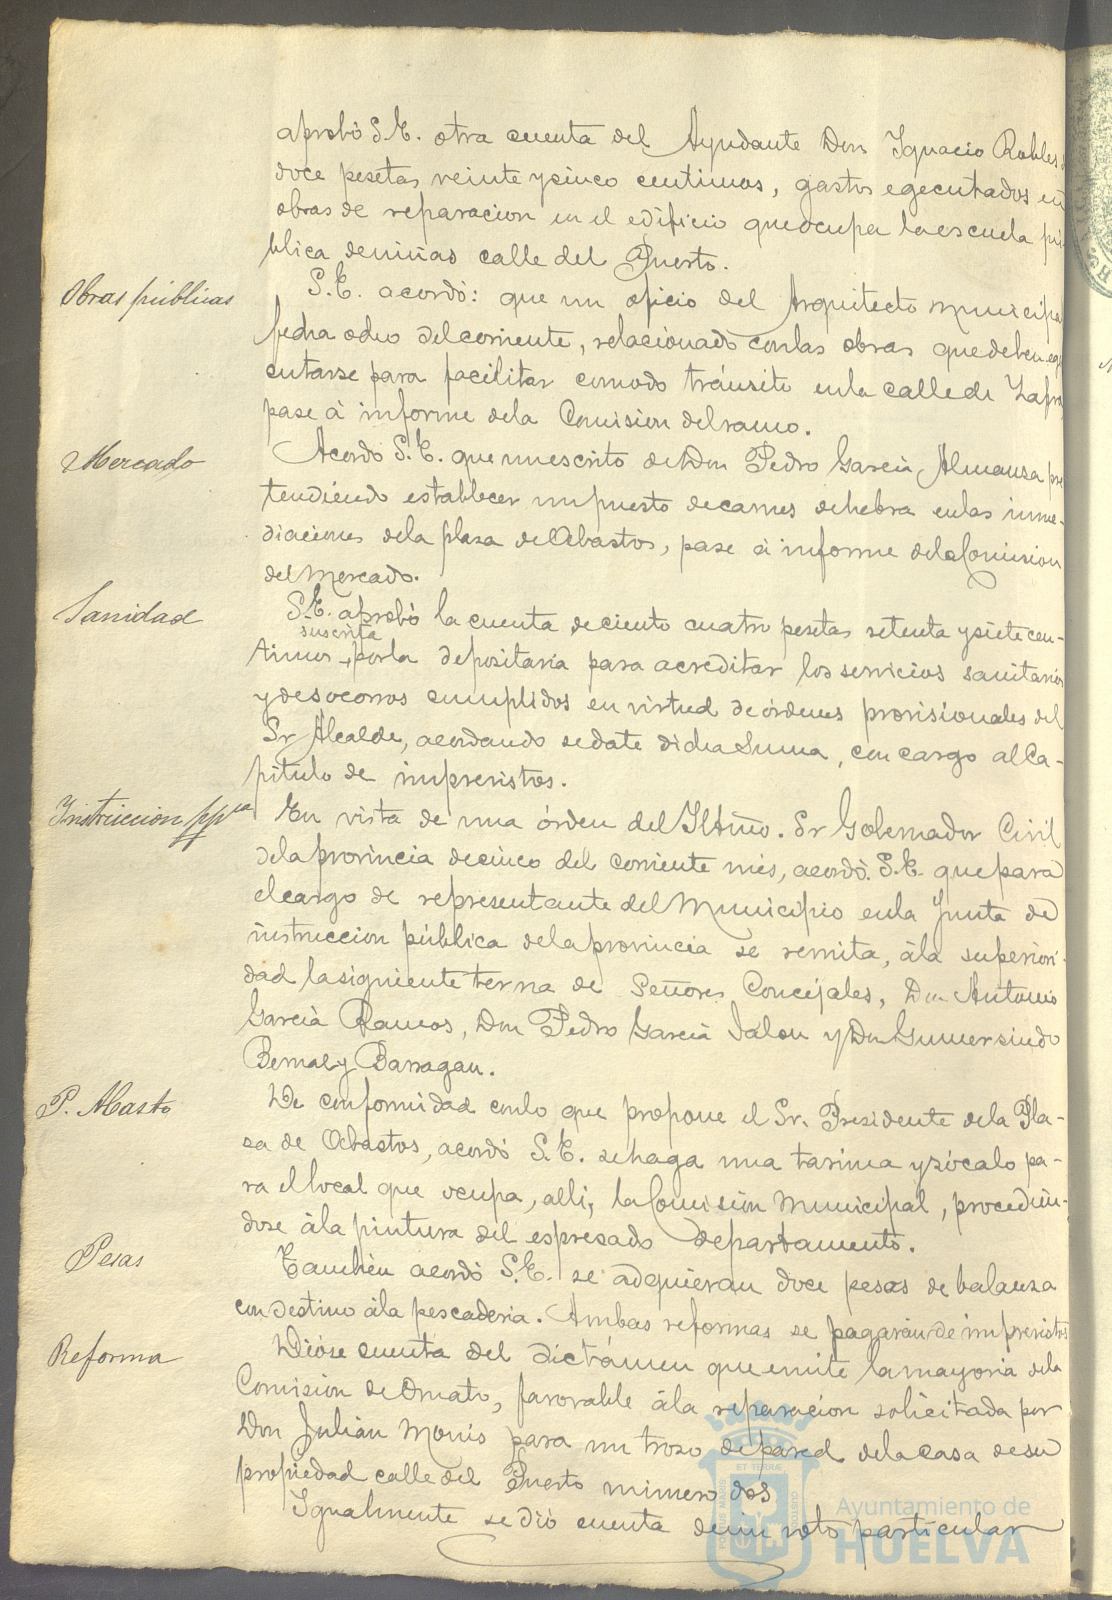 aprobó S.E. otra cuenta del Ayudante Don Ignacio Robles
doce pesetas veinte y cinco centimos, gastos egecutados en
obras de reparacion en el edificio que ocupa la escuela pú
blica de niñas calle del Puerto.
Obras públicas
S.E. acordó: que un oficio del Arquitecto municipal
fecha ocho del corriente, relacionado con las obras que deben ege
cutarse para facilitar comodo tránsito en la calle de Zafra
pase á informe de la Comision del ramo.
Mercado
Acordó S.E. que un escrito de Don Pedro Garcia Almansa pre
tendiendo establecer un puesto de carnes de hebra en las inme-
diaciones de la plasa de Abastos, pase á informe de la Comision
del Mercado.
Sanidad
S.E. aprobó la cuenta de ciento cuatro pesetas setenta y siete cen-
suscrita
timos por la depositaria para acreditar los servicios sanitarios
y de socorros cumplidos en virtud de órdenes provisionales del
Sr Alcalde, acordando se date dicha suma, con cargo al Ca-
pitulo de imprevistos.
Instruccion ppca
En vista de una órden del Iltmo. Sr Gobernador Civil
de la provincia de cinco del corriente mes, acordó S.E. que para
el cargo de representante del Municipio en la Junta de
instruccion pública de la provincia se remita, á la superiori-
dad la siguiente terna de Señores Concejales, Don Antonio
Garcia Ramos, Don Pedro Garcia Jalon y Don Gumersindo
Bernal y Barragan.
P. Abasto
De conformidad con lo que propone el Sr. Presidente de la Pla-
sa de Abastos, acordó S.E. se haga una tarima y zócalo pa-
ra el local que ocupa, alli, la Comisión Municipal, procedién-
dose á la pintura del espresado departamento.
Pesas
Tambien acordó S.E. se adquieran doce pesas de balanza
con destino á la pescaderia. Ambas reformas se pagarán de imprevistos
Reforma
Dióse cuenta del dictámen que emite la mayoria de la
Comision de Ornato, favorable á la reparacion solicitada por
Don Julián Monis para un troso de pared de la casa de su
propiedad calle del Puerto número dos
Igualmente se dió cuenta de un voto particular
Ayuntamiento de
HUELVA